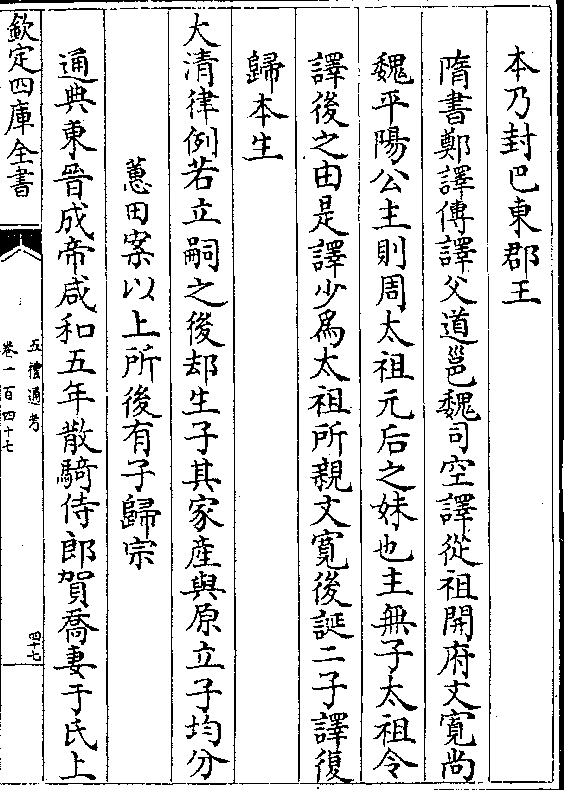 本乃封巴東郡王
隋書鄭譯傳譯父道邕魏司空譯從祖開府文寬尚
魏平陽公主則周太祖元后之妹也主無子太祖令
譯後之由是譯少為太祖所親文寬後誕二子譯復
歸本生
大清律例若立嗣之後却生子其家產與原立子均分
蕙田案以上所後有子歸宗
通典東晉成帝咸和五年散騎侍郎賀喬妻于氏上
欽定四庫全書
五禮通考
卷一百四十七
四七